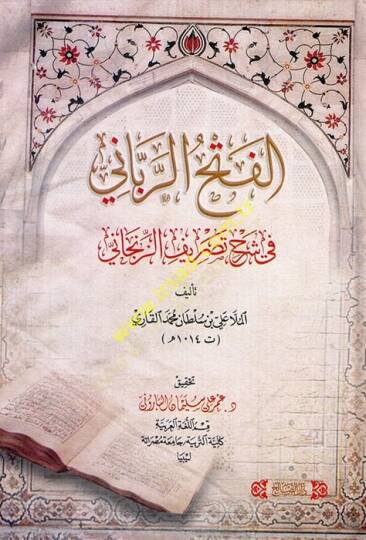 الفَتْحُ الرَّبَّانِي
في شَرْحِ تَصْرِيفِ الزَّنْجَانِي
تأليف
المُلَّا عَلي بن سُلطان محمد القَاري
(ت ١٠١٤ هـ)
تحقيق
د. عمر علي سليمان الباروني
قسم اللغة العربية
كلية التربية، جامعة مصراتة
ليبيا